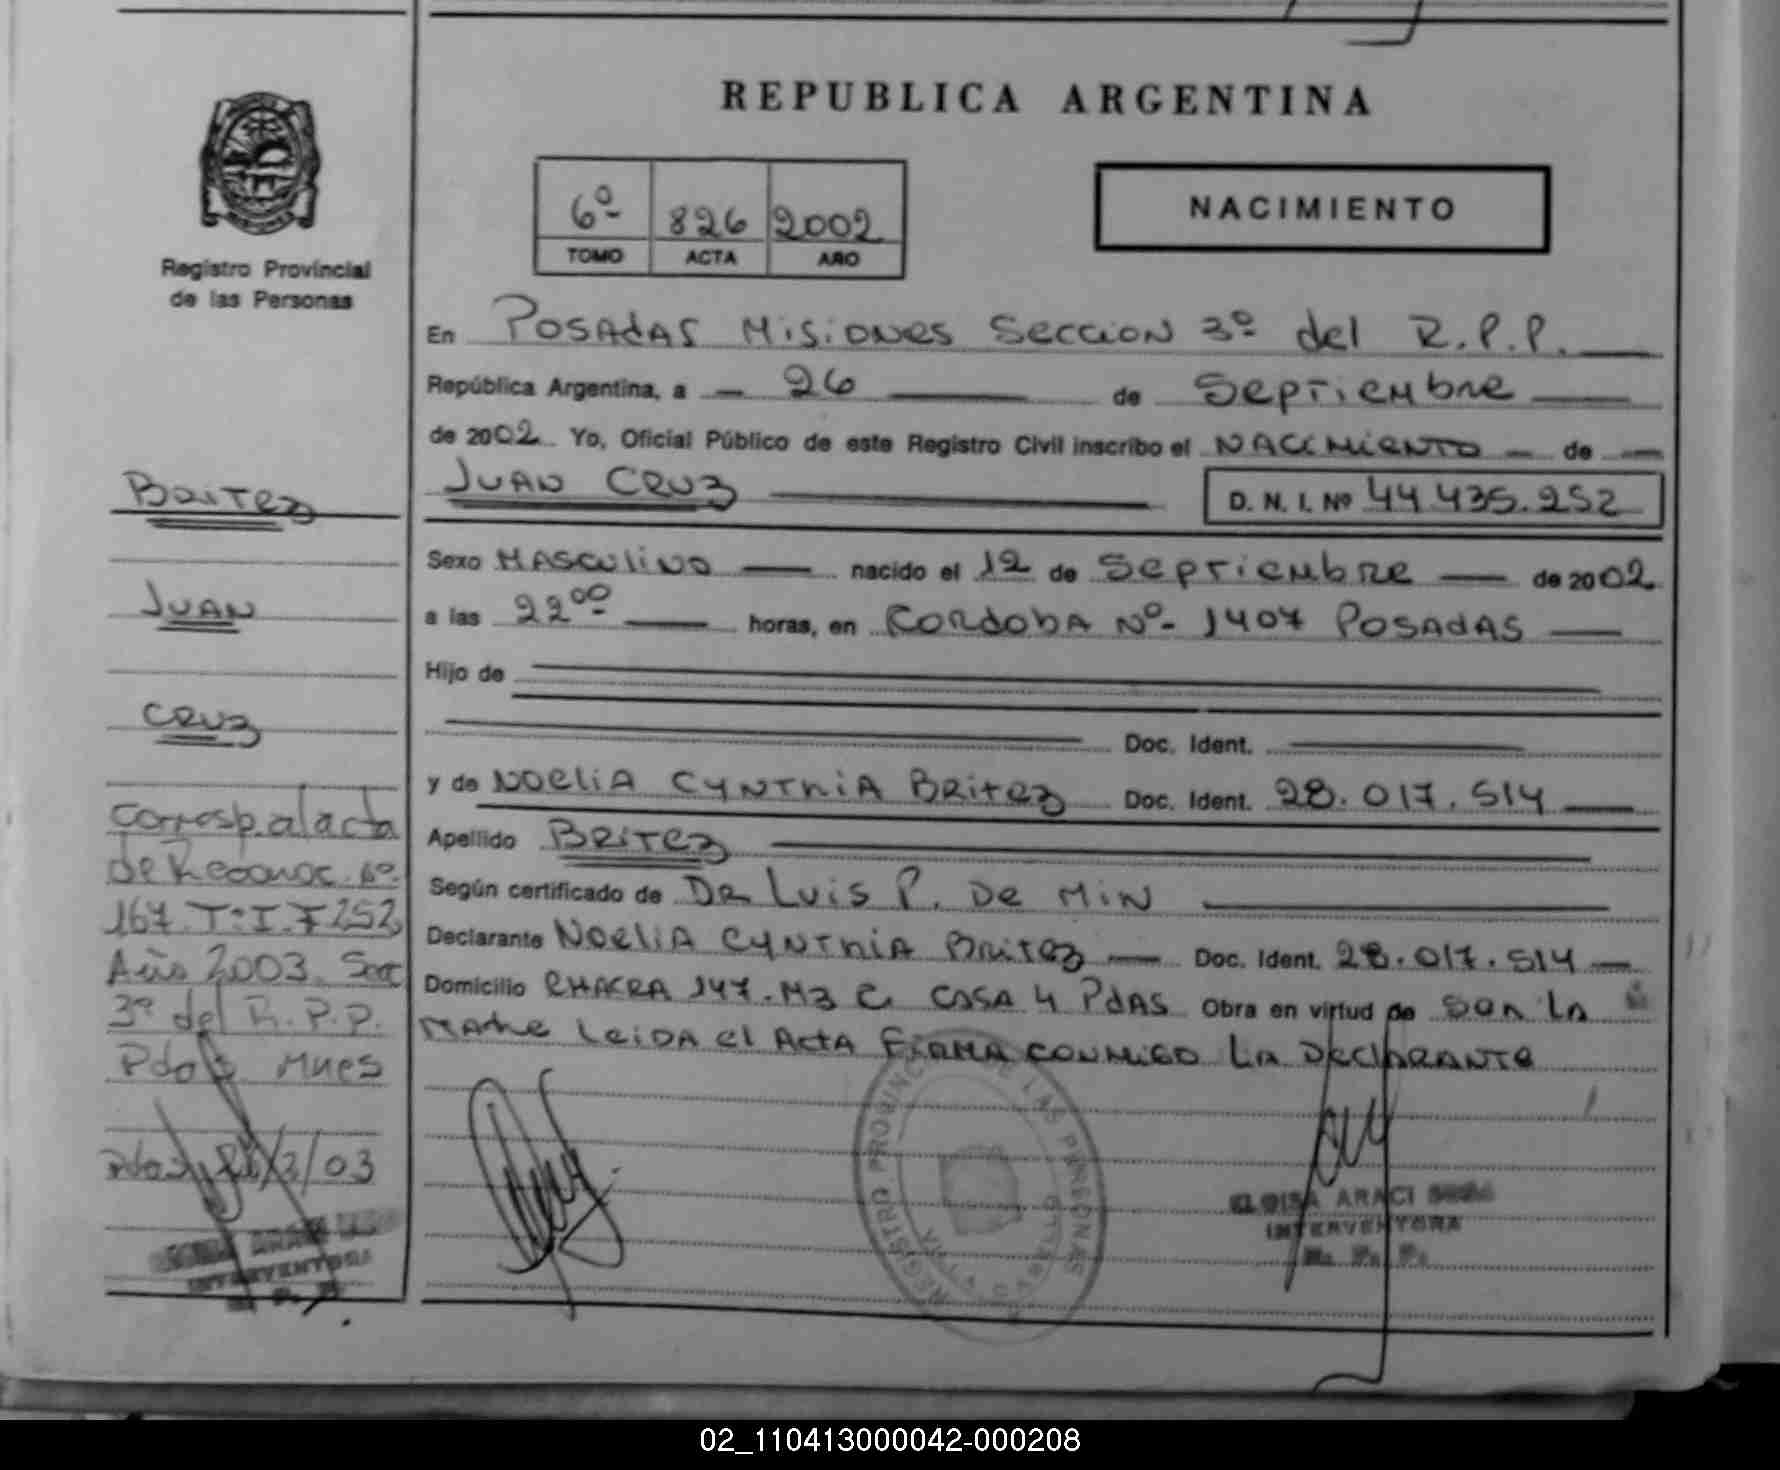 REPUBLICA ARGENTINA
6º 826 2002
TOMO ACTA AÑO
NACIMIENTO
Registro Provincial
de las Personas
En Posadas Misiones Seccion 3º del R.P.P.
República Argentina, a 26 de Septiembre
de 2002 Yo, Oficial Público de este Registro Civil inscribo el NACIMIENTO de
JUAN CRUZ
D. N. I. Nº 44.435.252
Sexo MASCULINO nacido el 12 de Septiembre de 2002
a las 22⁰⁰ horas, en CORDOBA Nº 1407 POSADAS
Hijo de
Doc. Ident.
y de NOELIA CYNTHIA BRITEZ Doc. Ident. 28.017.514
Apellido BRITEZ
Según certificado de DR LUIS P. DE MIN
Declarante NOELIA CYNTHIA BRITEZ Doc. Ident. 28.017.514
Domicilio CHACRA 147. M3 C. CASA 4 PDAS Obra en virtud de SER LA
MADRE LEIDA el ACTA FIRMA CONMIGO LA DECLARANTE
BRITEZ
JUAN
CRUZ
Corresp. al acta
de Reconoc. Nº
167. T: I. F 252
Año 2003. Secc
3º del R.P.P.
Pdas Mnes
Pdas 3/03
INTERVENTORA
REGISTRO PROVINCIAL DE LAS PERSONAS
ELOISA ARACI
INTERVENTORA
R. P. P.
02_110413000042-000208